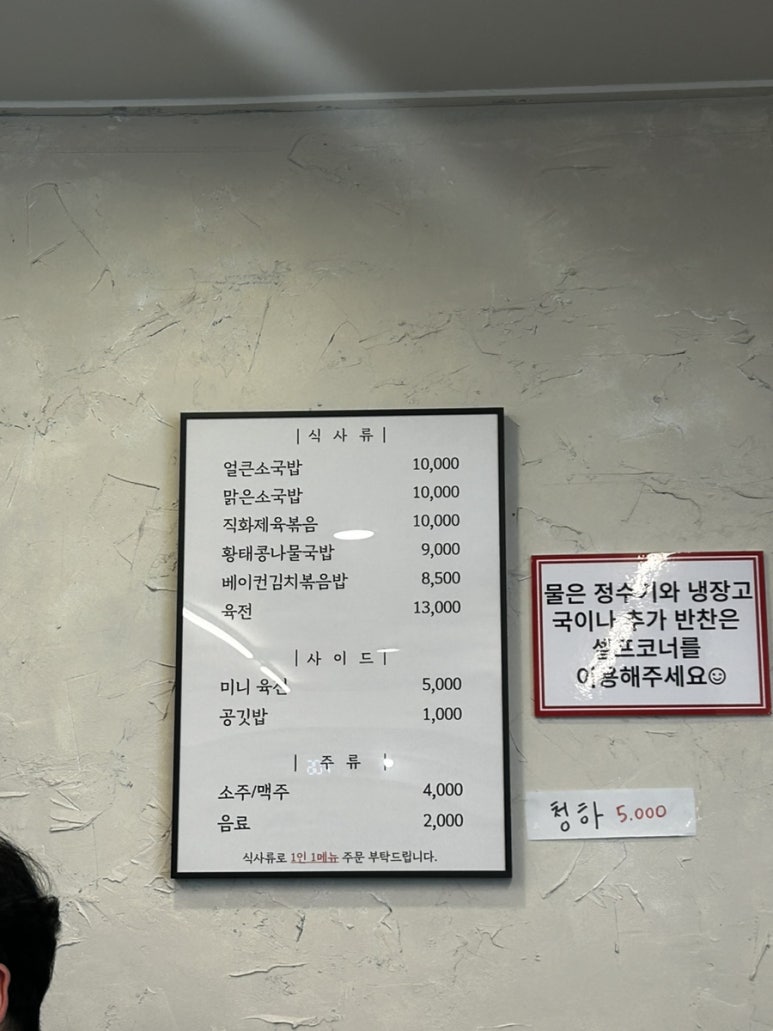 |식 사 류|
얼큰소국밥 10,000
맑은소국밥 10,000
직화제육볶음 10,000
황태콩나물국밥 9,000
베이컨김치볶음밥 8,500
육전 13,000
|사 이 드|
미니 5,000
공깃밥 1,000
| 주 류 |
소주/맥주 4,000
음료 2,000
식사류로 1인 1메뉴 주문 부탁드립니다.
물은 정수기와 냉장고
국이나 추가 반찬은
셀프코너를
이용해주세요☺
청하 5.000